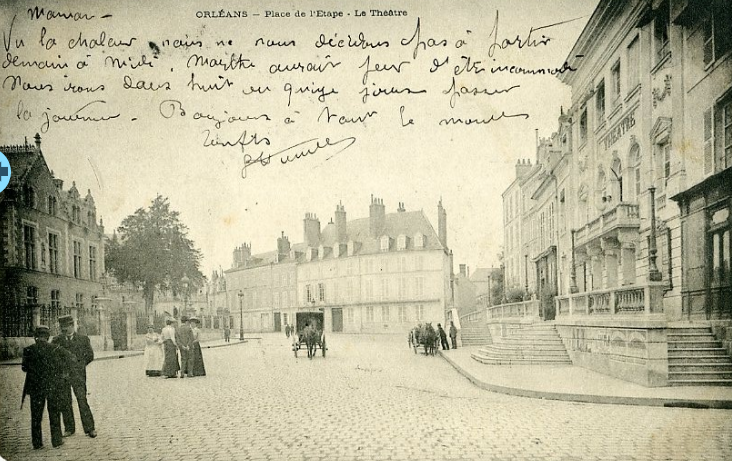 ORLÉANS — Place de l'Etape - Le Théâtre
Maman —
Vu la chaleur nous ne nous décidons pas à partir
demain à midi. Marthe aurait peur d'être incommodé
Nous irons dans huit ou quinze jours passer
la journée. Bonjours à tout le monde
THÉATRE